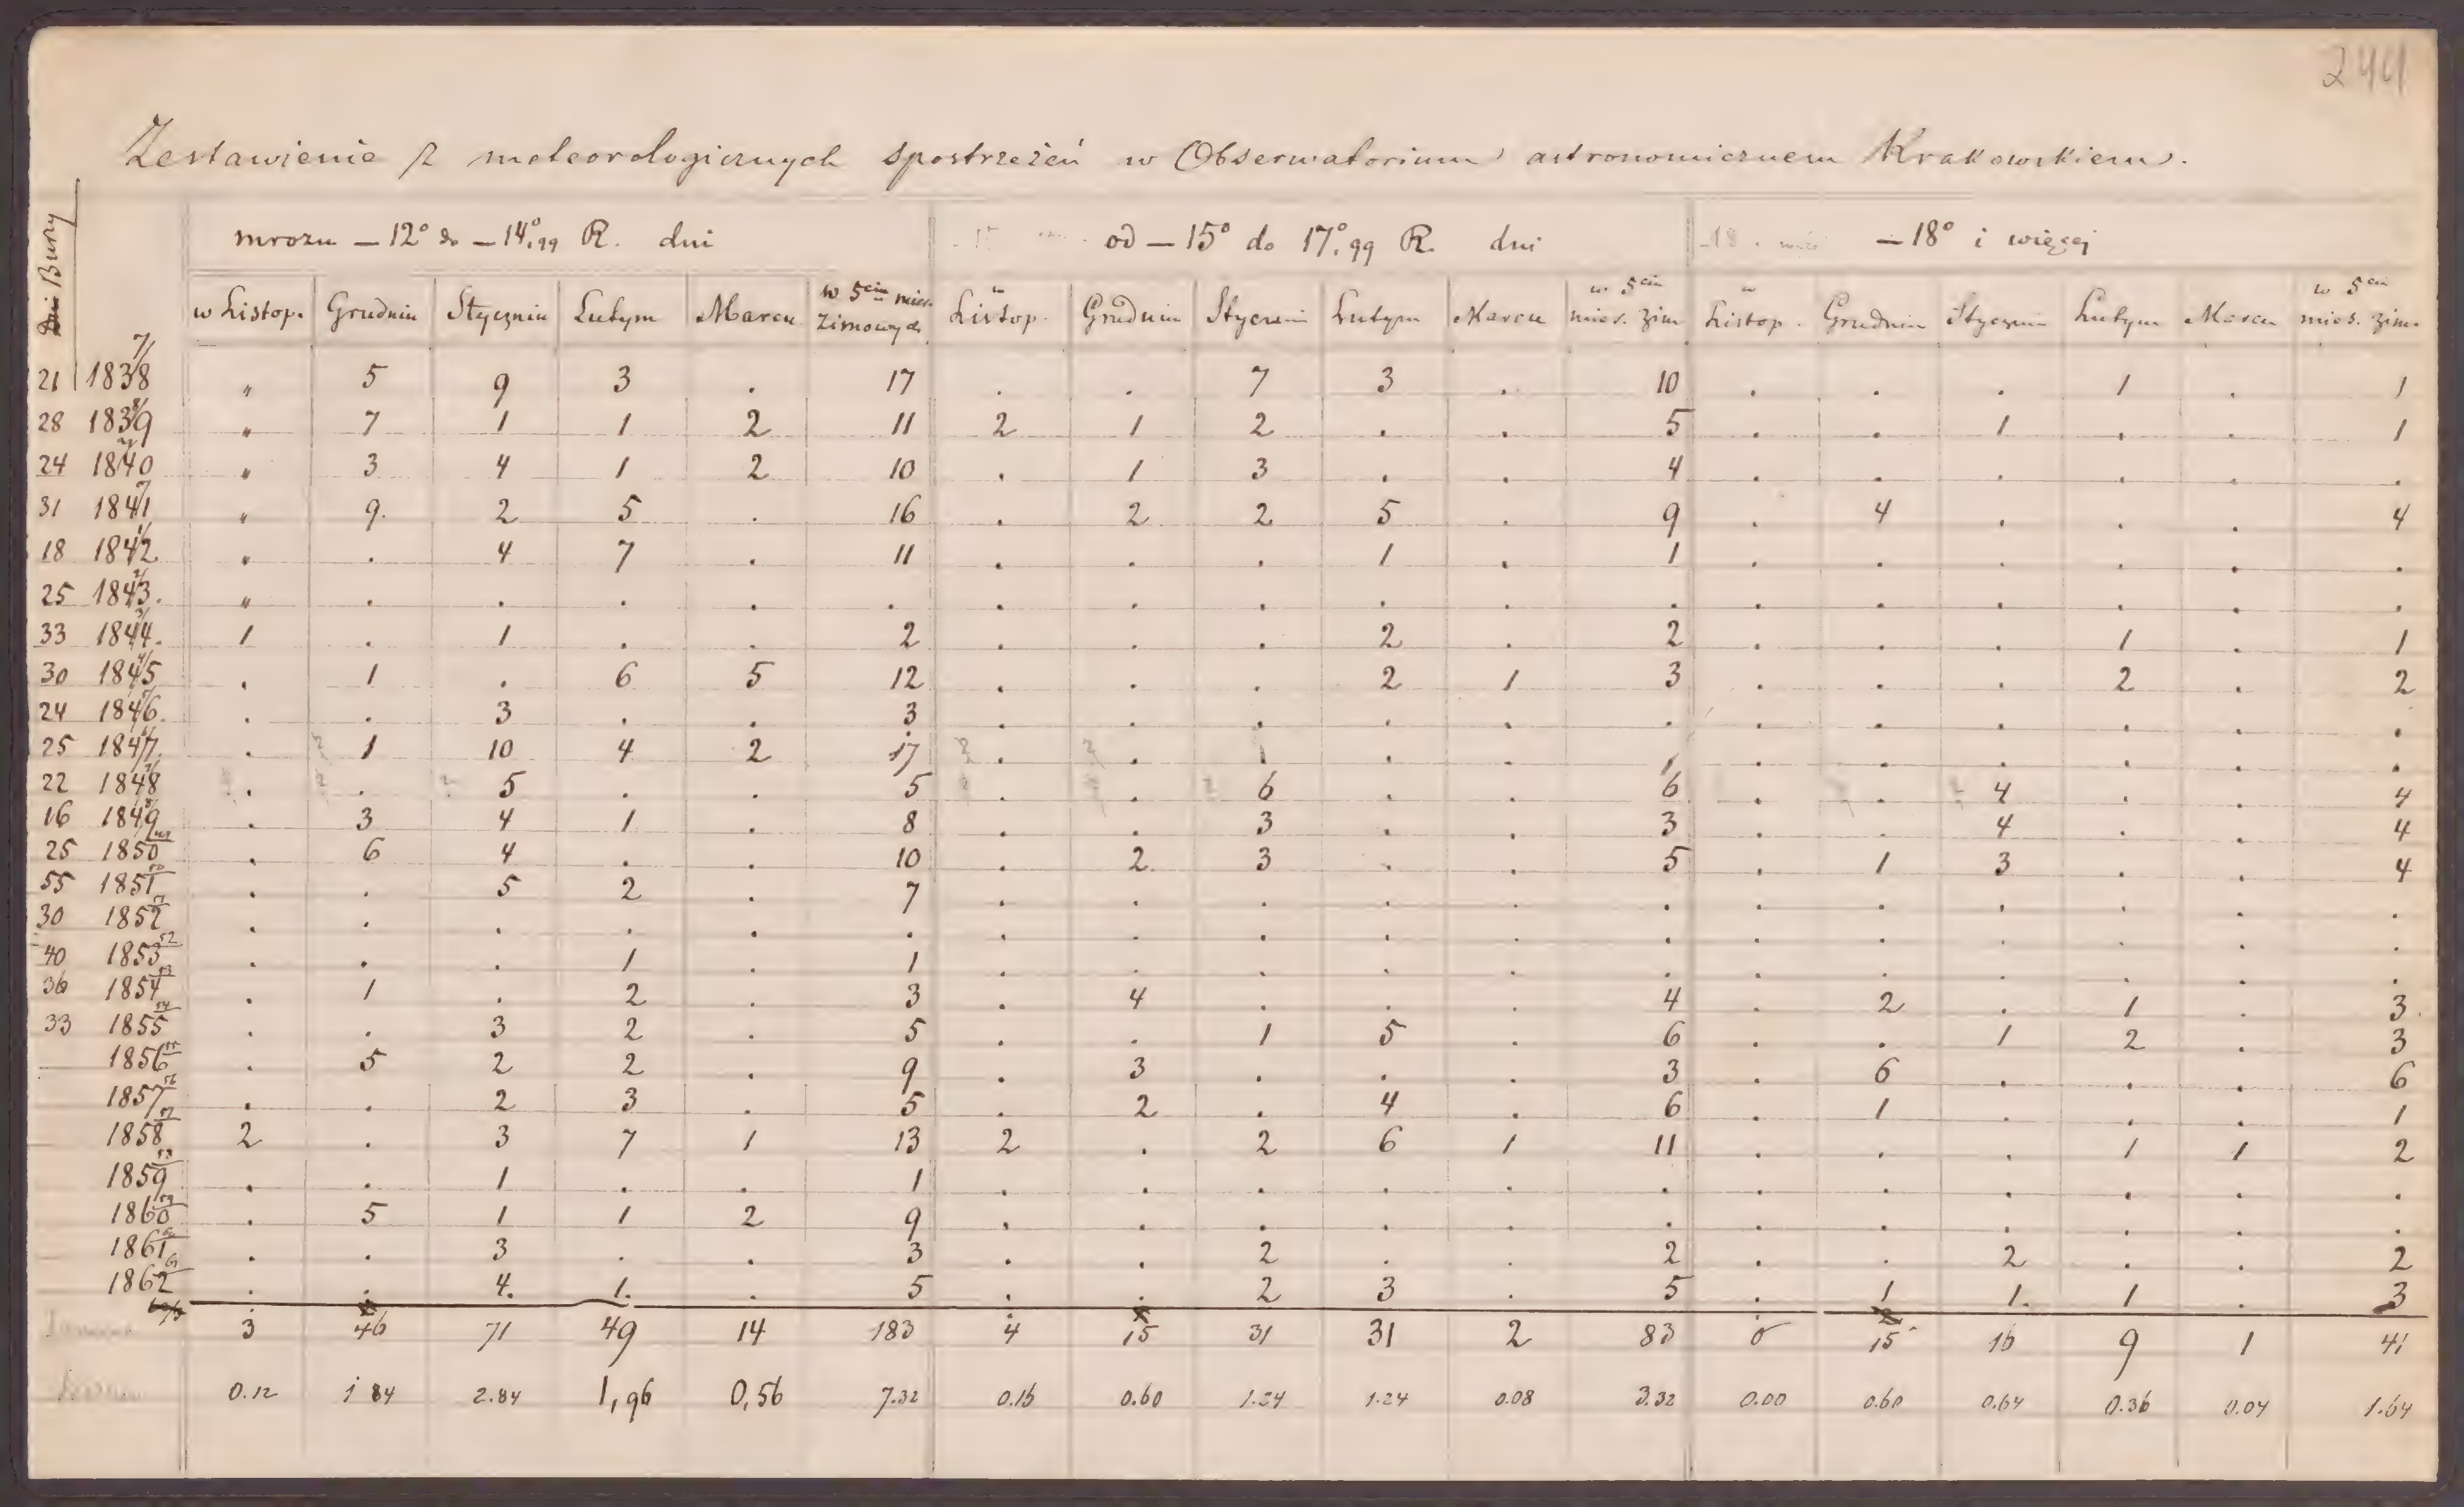 244
Zestawienie z meteorologicznych spostrzeżeń w Obserwatorium astronomicznem Krakowskiem.
Dni Burzy mrozu — 12° do — 14°,99 R. dni od — 15° do 17°,99 R. dni — 18° i więcej
w Listop. Grudniu Styczniu Lutym Marcu w 5ciu mies. Zimowych w Listop. Grudniu Styczniu Lutym Marcu w 5ciu mies. zim. w Listop. Grudniu Styczniu Lutym Marcu w 5ciu mies. zim.
21 1838 7/ „ 5 9 3 . 17 . . 7 3 . 10 . . . 1 . 1
28 1839 8/ „ 7 1 1 2 11 2 1 2 . . 5 . . 1 . . 1
24 1840 9/ „ 3 4 1 2 10 . 1 3 . . 4 . . . . . .
31 1841 „ 9. 2 5 . 16 . 2 2 5 . 9 . 4 . . . 4
18 1842 1/ „ . 4 7 . 11 . . . 1 . 1 . . . . . .
25 1843. 2/ „ . . . . . . . . . . . . . . . . .
33 1844. 3/ 1 . 1 . . 2 . . . 2 . 2 . . . 1 . 1
30 1845 4/ . 1 . 6 5 12 . . . 2 1 3 . . . 2 . 2
24 1846. 5/ . . 3 . . 3 . . . . . . . . . . . .
25 1847. 6/ . 1 10 4 2 17 . . 1 . . 1 . . . . . .
22 1848 7/ . . 5 . . 5 . . 6 . . 6 . . 4 . . 4
16 1849 8/ . 3 4 1 . 8 . . 3 . . 3 . . 4 . . 4
25 1850 49 . 6 4 . . 10 . 2 3 . . 5 . 1 3 . . 4
55 1851 50 . . 5 2 . 7 . . . . . . . . . . . .
30 1852 51 . . . . . . . . . . . . . . . . . .
40 1853 52 . . . 1 . 1 . . . . . . . . . . . .
36 1854 53 . 1 . 2 . 3 . 4 . . . 4 . 2 . 1 . 3
33 1855 54 . . 3 2 . 5 . . 1 5 . 6 . . 1 2 . 3
1856 55 . 5 2 2 . 9 . 3 . . . 3 . 6 . . . 6
1857 56 . . 2 3 . 5 . 2 . 4 . 6 . 1 . . . 1
1858 57 2 . 3 7 1 13 2 . 2 6 1 11 . . . 1 1 2
1859 58 . . 1 . . 1 . . . . . . . . . . . .
1860 59 . 5 1 1 2 9 . . . . . . . . . . . .
1861 60 . . 3 . . 3 . . 2 . . 2 . . 2 . . 2
1862 61 . . 4. 1. . 5 . . 2 3 . 5 . 1 1. 1 . 3
3 46 71 49 14 183 4 15 31 31 2 83 0 15 16 9 1 41
0.12 1 84 2.84 1,96 0,56 7.32 0.16 0.60 1.24 1.24 0.08 3.32 0.00 0.60 0.64 0.36 0.04 1.64